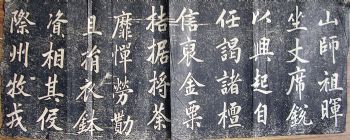 山師祖暉
坐丈席銳
以興起自
任謁諸檀
信裒金粟
拮据將荼
靡憚勞勩
且捐衣鉢
資相其役
際州牧戎